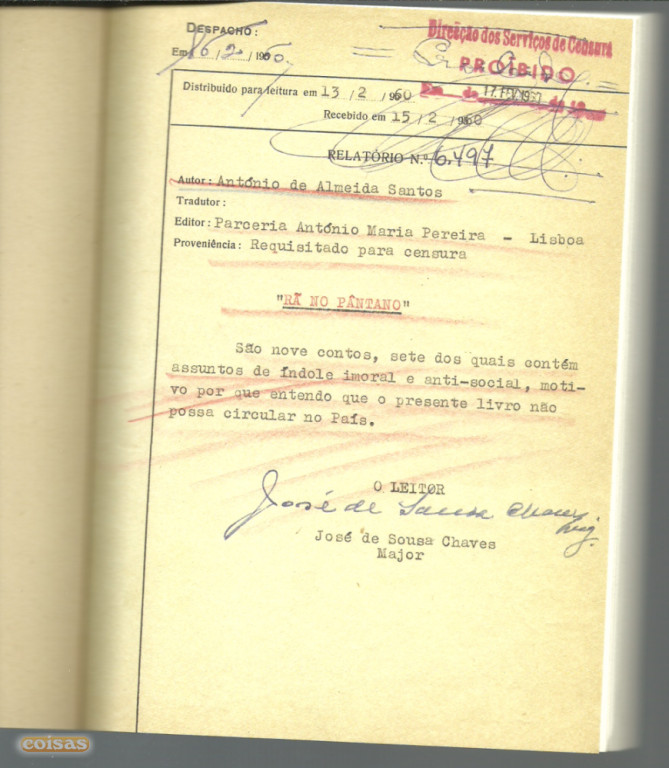 DESPACHO:
Em 16/2/1960.
Direcção dos Serviços de Censura
PROIBIDO
Distribuido para leitura em 13/2/960
17.FEV.1960
Recebido em 15/2/960
RELATÓRIO N.º 6.497
Autor: António de Almeida Santos
Tradutor:
Editor: Parceria António Maria Pereira - Lisboa
Proveniência: Requisitado para censura
"RÃ NO PÂNTANO"
São nove contos, sete dos quais contém
assuntos de índole imoral e anti-social, moti-
vo por que entendo que o presente livro não
possa circular no País.
O LEITOR
José de Sousa Chaves
José de Sousa Chaves
Major
coisas